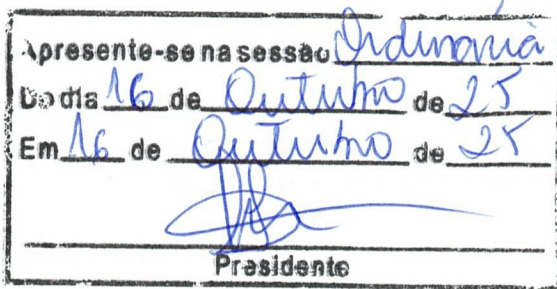 Apresente-se na sessão Ordinária
Do dia 16 de Outubro de 25
Em 16 de Outubro de 25
Presidente